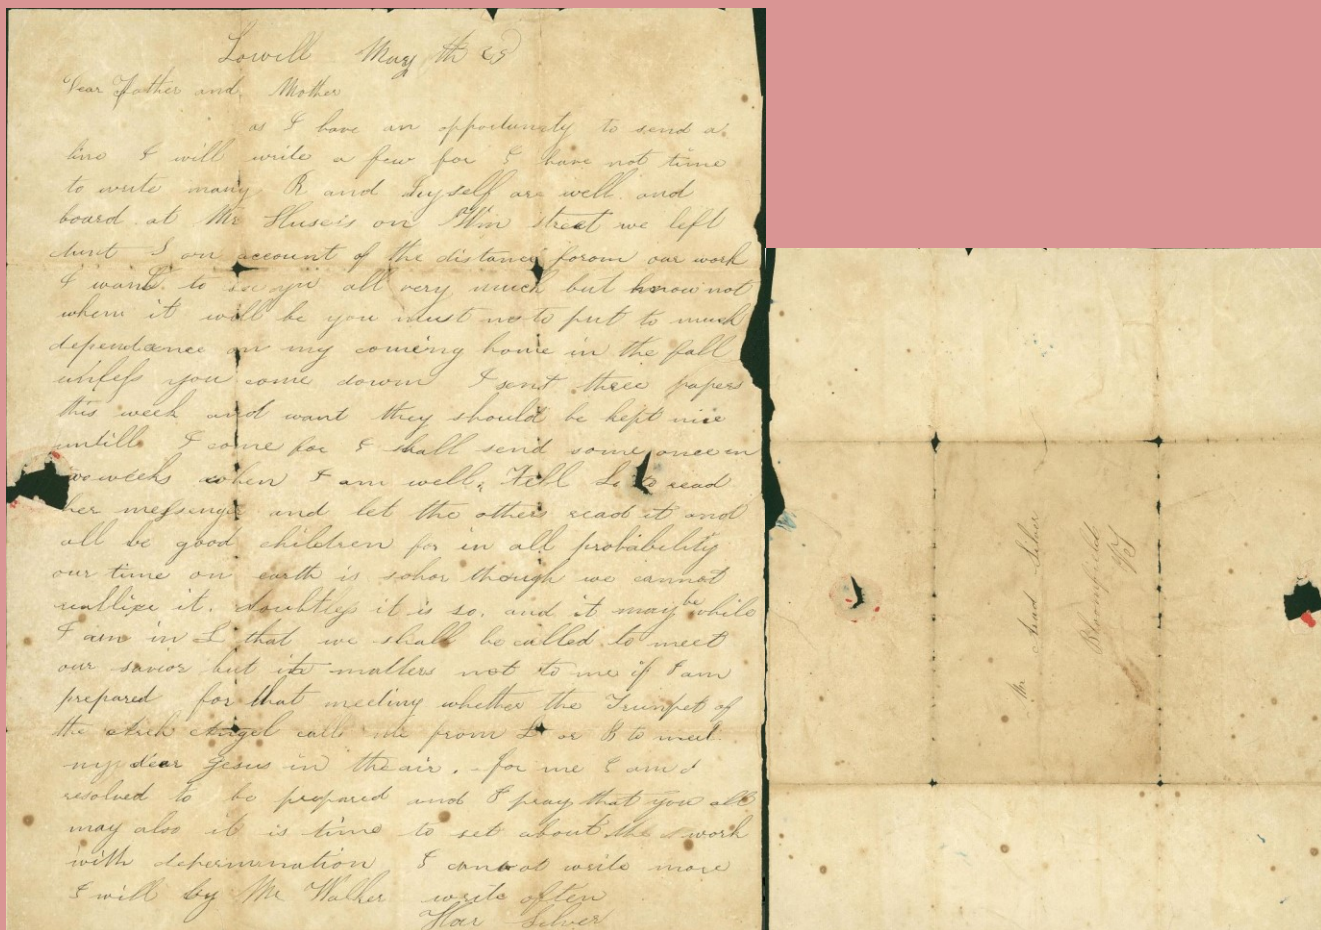 Lowell May th
Dear Father and Mother
as I have an opportunity to send a
line I will write a few for I have not time
to write many R and myself are well and
board at Mr on street we left
on account of the distance forom our work
I want to see you all very much but know not
when it will be you must not put to much
dependance on my coming home in the fall
unless you come down I sent three papers
this week and want they should be kept nice
untill I come for I shall send some once in
weeks when I am well, Tell L to read
her messenger and let the others read it and
all be good children for in all probability
our time on earth is though we cannot
reallize it. doubtless it is so. and it may be while
I am in L that we shall be called to meet
our savior but it matters not to me if I am
prepared for that meeting whether the Trumpet of
the Arch Angel call me from L or B to meet
my dear Jesus in the air. for me I am
resolved to be prepared and I pray that you all
may also it is time to set about the work
with I cannot write more
I will by Mr Walker write often
Silver
Mr Arad Silver
Bloomfield
Vt